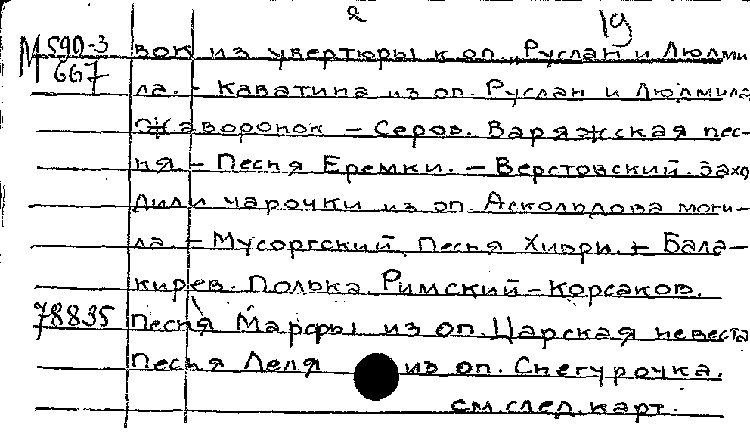 2 19
М 590-3 вок из увертюры к оп. „Руслан и Людми
667 ла. - Каватина из оп. Руслан и Людмила
Жаворонок - Серов. Варяжская пес-
ня - Песня Еремки. - Верстовский. Захо
дили чарочки из оп. Аскольдова моги-
ла. - Мусоргский. Песня Хиври. - Бала-
кирев. Полька. Римский-Корсаков.
78835 Песня Марфы из оп. Царская невеста
Песня Леля из оп. Снегурочка.
см. след. карт.